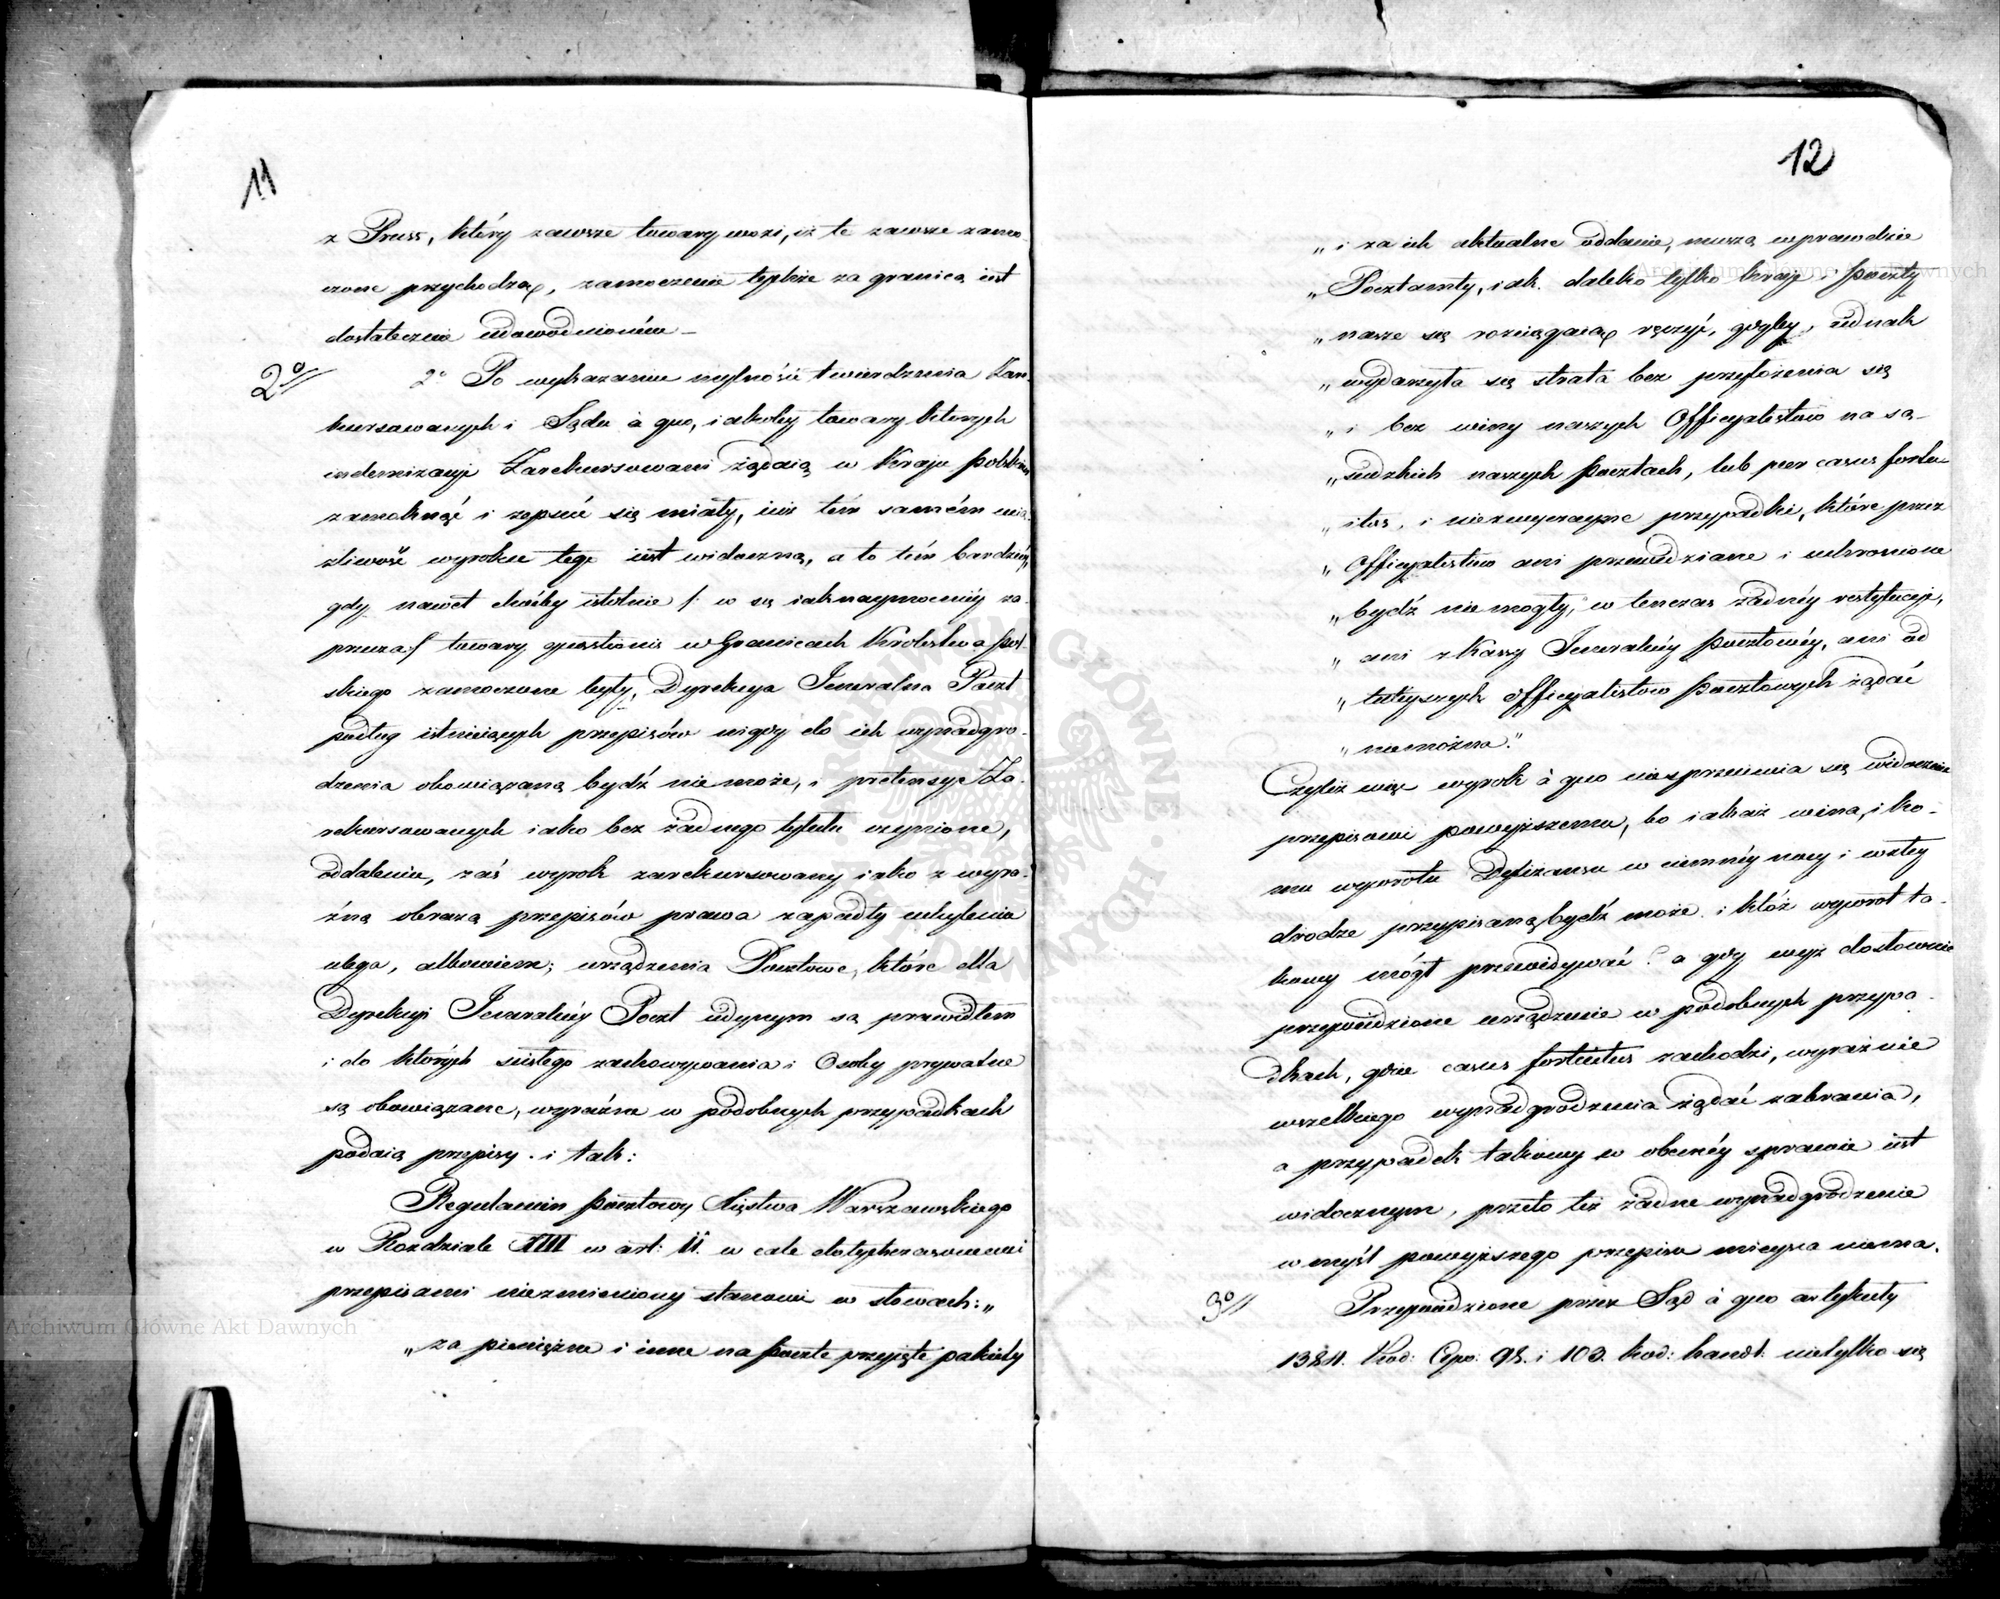 11
z Pruss, który zawsze towary wozi, iż te zawsze zamo-
czone przychodzą, zamoczenie tychże za granicą iest
dostatecznie udowodnionem —
2o 2o Po wykazaniu mylności twierdzenia Zare-
kursowanych i Sądu à quo, iakoby towary których
indemnizacyi Zarekursowani żądaią w Kraju Polskim
zamoknąć i zepsuć się miały, iuż tém samém nie-
ztiwość wyroku tego iest widoczną, a to tém bardziéj,
gdy nawet choćby istotnie /: co się iaknaymocniéy za-
przecza :/ towary questionis w Granicach Królestwa Pol-
skiego zamoczone były, Dyrekcya Jeneralna Poczt
podług istnieiących przepisów nigdy do ich wynadgro-
dzenia obowiązaną bydź nie może, i pretensye Za-
rekursowanych iako bez żadnego tytułu czynione,
oddalenia, zaś wyrok zarekursowany iako z wyra-
źną obrazą przepisów prawa zapadły uchylenia
ulega, albowiem; urządzenia Pocztowe, które dla
Dyrekcyi Jeneralnéy Poczt iedynym są prawidłem
i do których ścisłego zachowywania i Osoby prywatne
są obowiązane, wyraźne w podobnych przypadkach
podaią przepisy. i tak:
Regulamin Pocztowy Xięstwa Warszawskiego
w Rozdziale XIII w art: 11. w cale dotychczasowemi
przepisami niezmieniony stanowi w słowach: „
„za pieniężne i inne na Poczte przyjęte pakiety
12
„i za ich aktualne oddanie, muszą wprawdzie
„Pocztamty, iak daleko tylko kraje i Poczty
„nasze się rozciągaią ręczyć, gdyby iednak
„wydarzyła się strata bez przyłożenia się
„i bez winy naszych Officyalistów na są-
„siedzkich naszych Pocztach, lub per casus fortu-
„itos, i niezwyczayne przypadki, które przez
„Officyalistów ani przewidziane i uchronione
„bydź nie mogły, w tenczas żadnéy restytucyi,
„ani z Kassy Jeneralnéy Pocztowéy, ani od
„tuteyszych officyalistów Pocztowych żądać
„niemożna."
Czyliż więc wyrok à quo niesprzeciwia się widocznie
przepisowi powyższemu, bo iakaż wina, i ko-
mu wywrotu Dyliżansu w ciemnéy nocy i w złey
drodze przypisaną bydź może. i któż wywrót ta-
kowy mógł przewidywać? a gdy wyż dosłownie
przywiedzione urządzenie w podobnych przypa-
dkach, gdzie casus fortuitus zachodzi, wyraźnie
wszelkiego wynadgrodzenia żądać zabrania,
a przypadek takowy w obecnéy sprawie iest
widocznym, przeto też żadne wynadgrodzenie
w myśl powyższego przepisu mieysca niema.
3o Przywiedzione przez Sąd à quo artykuły
1384. Kod: Cyw: 98. i 103. kod: handl. nietylko się